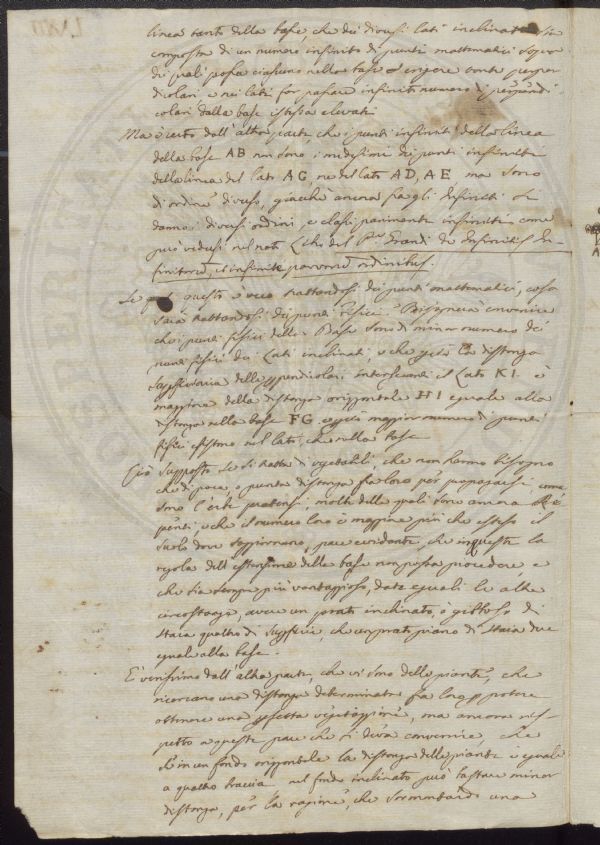 linea tanto della base che dei diversi lati inclinati sia
composta di un numero infinito di punti mattematici sopra
dei quali possa ciascuno nella base erigere tante perpen
dicolari e nei lati far passare infinito numero di perpendi
colari dalla base istessa elevati
Ma è certo dall'altra parte, che i punti infiniti della linea
della base AB non sono i medesimi dei punti infiniti
della linea del lato AG, ne del lato AD, AE ma sono
di ordine diverso, giacchè ancora fra gli Infiniti si
danno diversi ordini, e classi parimente infinite come
può vedersi nel noto Libro del P. Grandi de Infinitis In-
finitorum, et infinite parvorum ordinibus.
Se questo è vero trattandosi dei punti mattematici, cosa
sarà trattandosi dei punti fisici? Bisognerà convenire
che i punti fisici della Base sono di minor numero dei
punti fisici dei Lati inclinati, e che però la distanza
delle perpendicolari intersecanti il Lato KI è
maggiore della distanza orizzontale HI eguale alla
distanza nella base FG e però maggior numero di punti
fisici esistono nel lato, che nella base
Ciò supposto se si tratta di vegetabili, che non hanno bisogno
che di poca, o punta distanza fra loro per propagarsi, come
sono l'erbe pratensi, molte delle quali sono ancora Re
penti, e che il numero loro è maggiore più che esteso il
suolo dove soggiornano, pare evidente, che in queste la
regola dell'estensione della base non possa procedere e
che sia sempre più vantaggioso, date eguali le altre
circostanze, avere un prato inclinato, o gibboso di
staia quattro di superficie, che un prato piano di staia due
eguale alla base.
È verissimo dall'altra parte, che vi sono delle piante, che
ricercano una distanza determinata fra loro per potere
ottenere una perfetta vegetazione, ma ancora ris-
petto a queste pare che si deva convenire, che
se in un fondo orizzontale la distanza delle piante è eguale
a quattro braccia nel fondo inclinato può bastare minor
distanza, per la ragione, che sormontando una